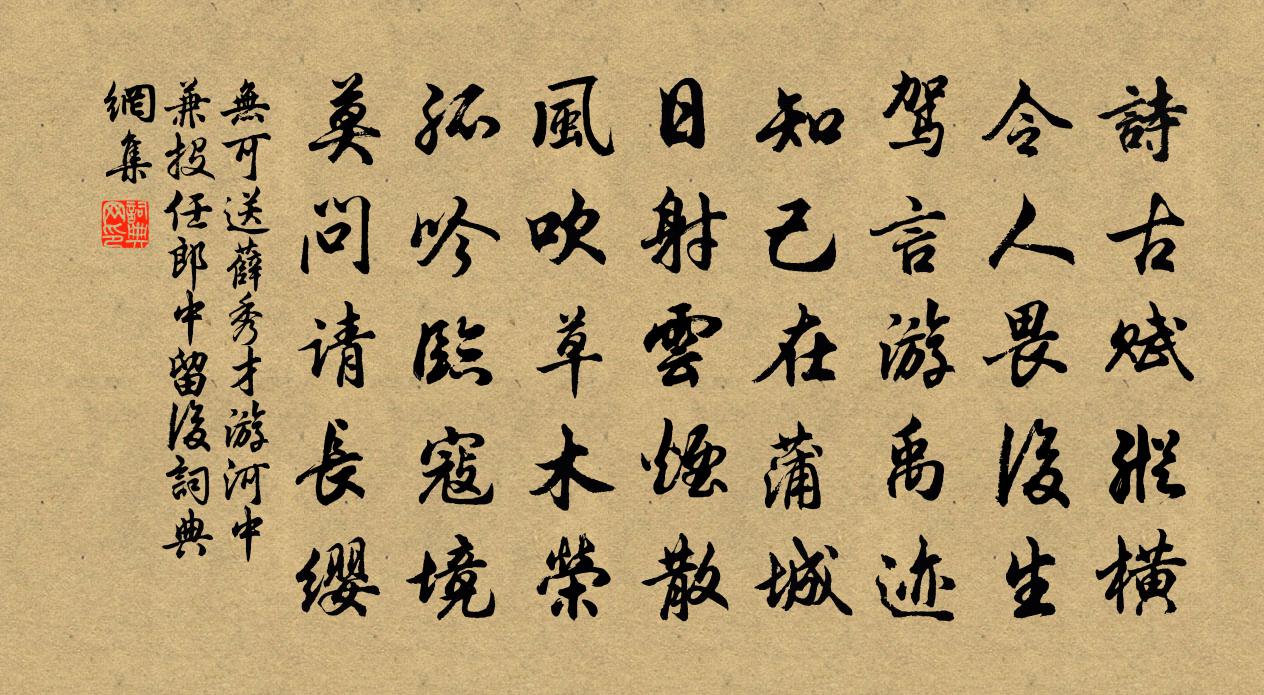 詩古賦縱橫
令人畏後生
駕言游禹迹
知己在蒲城
日射雲煙散
風吹草木榮
孤吟臨寇境
莫问请長纓
無可送薛秀才游河中
兼投任郎中留後詞典
網集
詞典网印